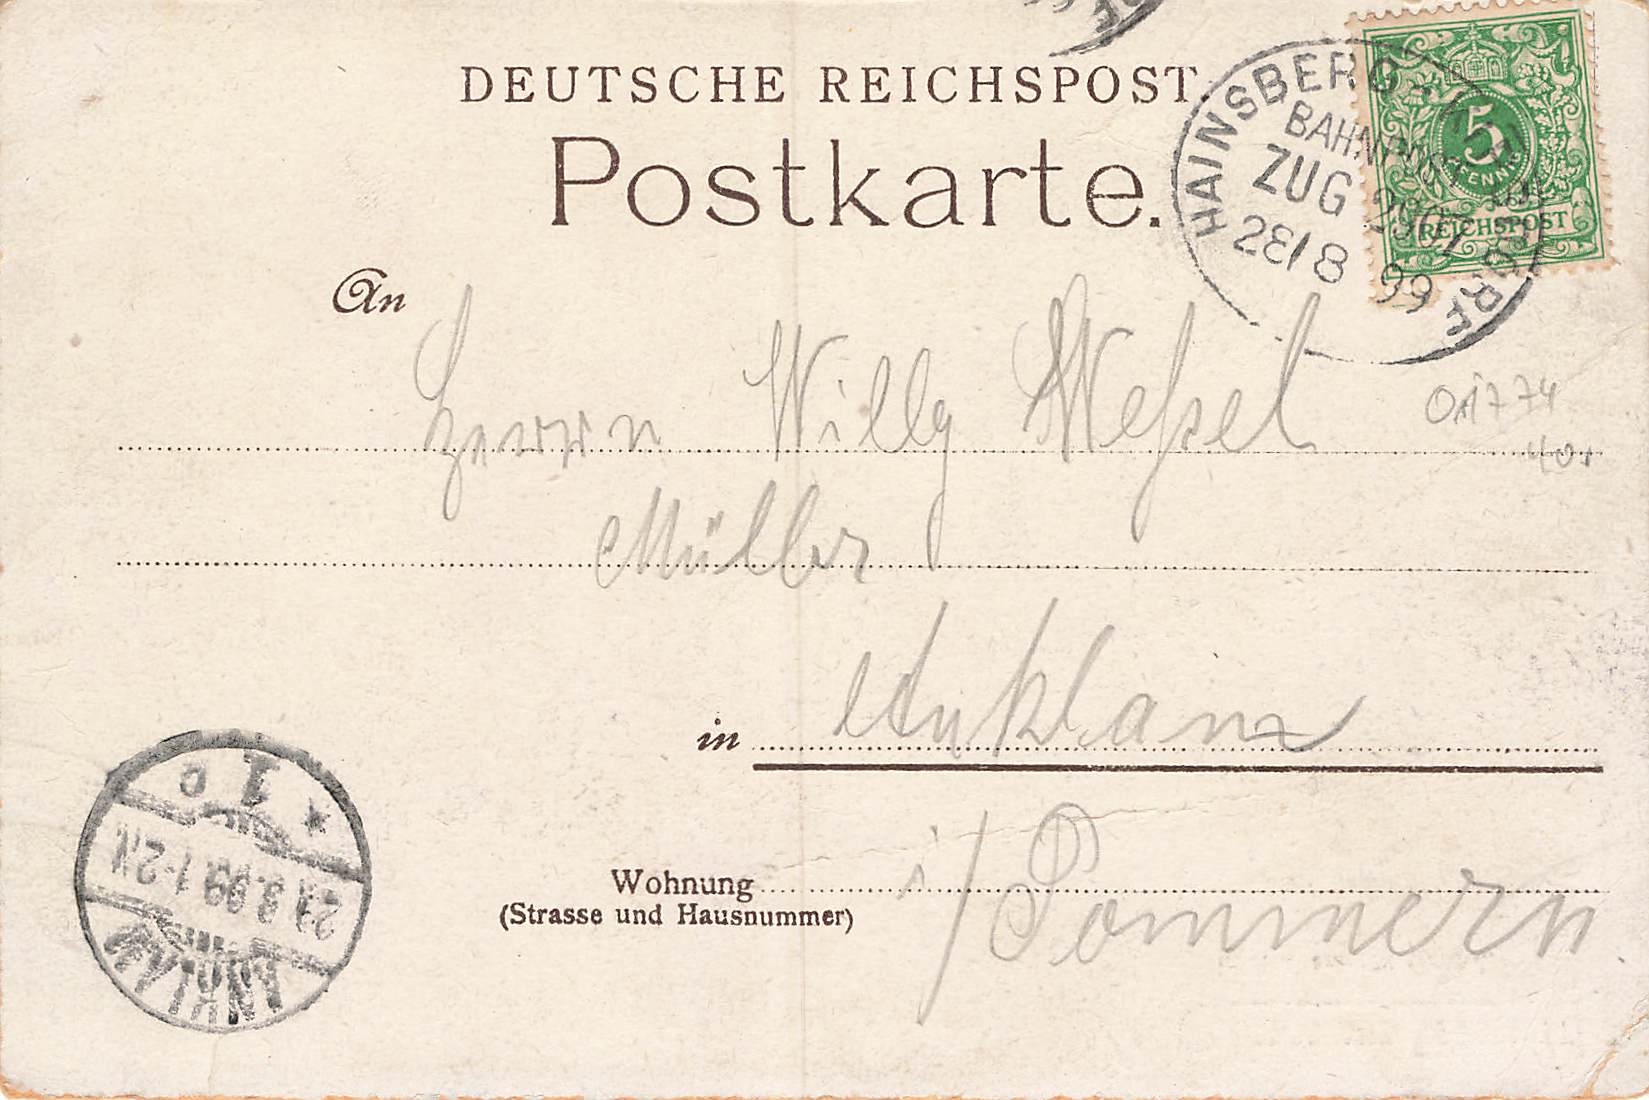 DEUTSCHE REICHSPOST
Postkarte.
HAINSBERG
BAHNPOST
ZUG 2907
28/8 99
5
PFENNIG
REICHSPOST
An
Herrn Willy Weßel
Müller
in Anklam
i/Pommern
Wohnung
(Strasse und Hausnummer)
ANKLAM
29.8.99 1-2N
* 1 c